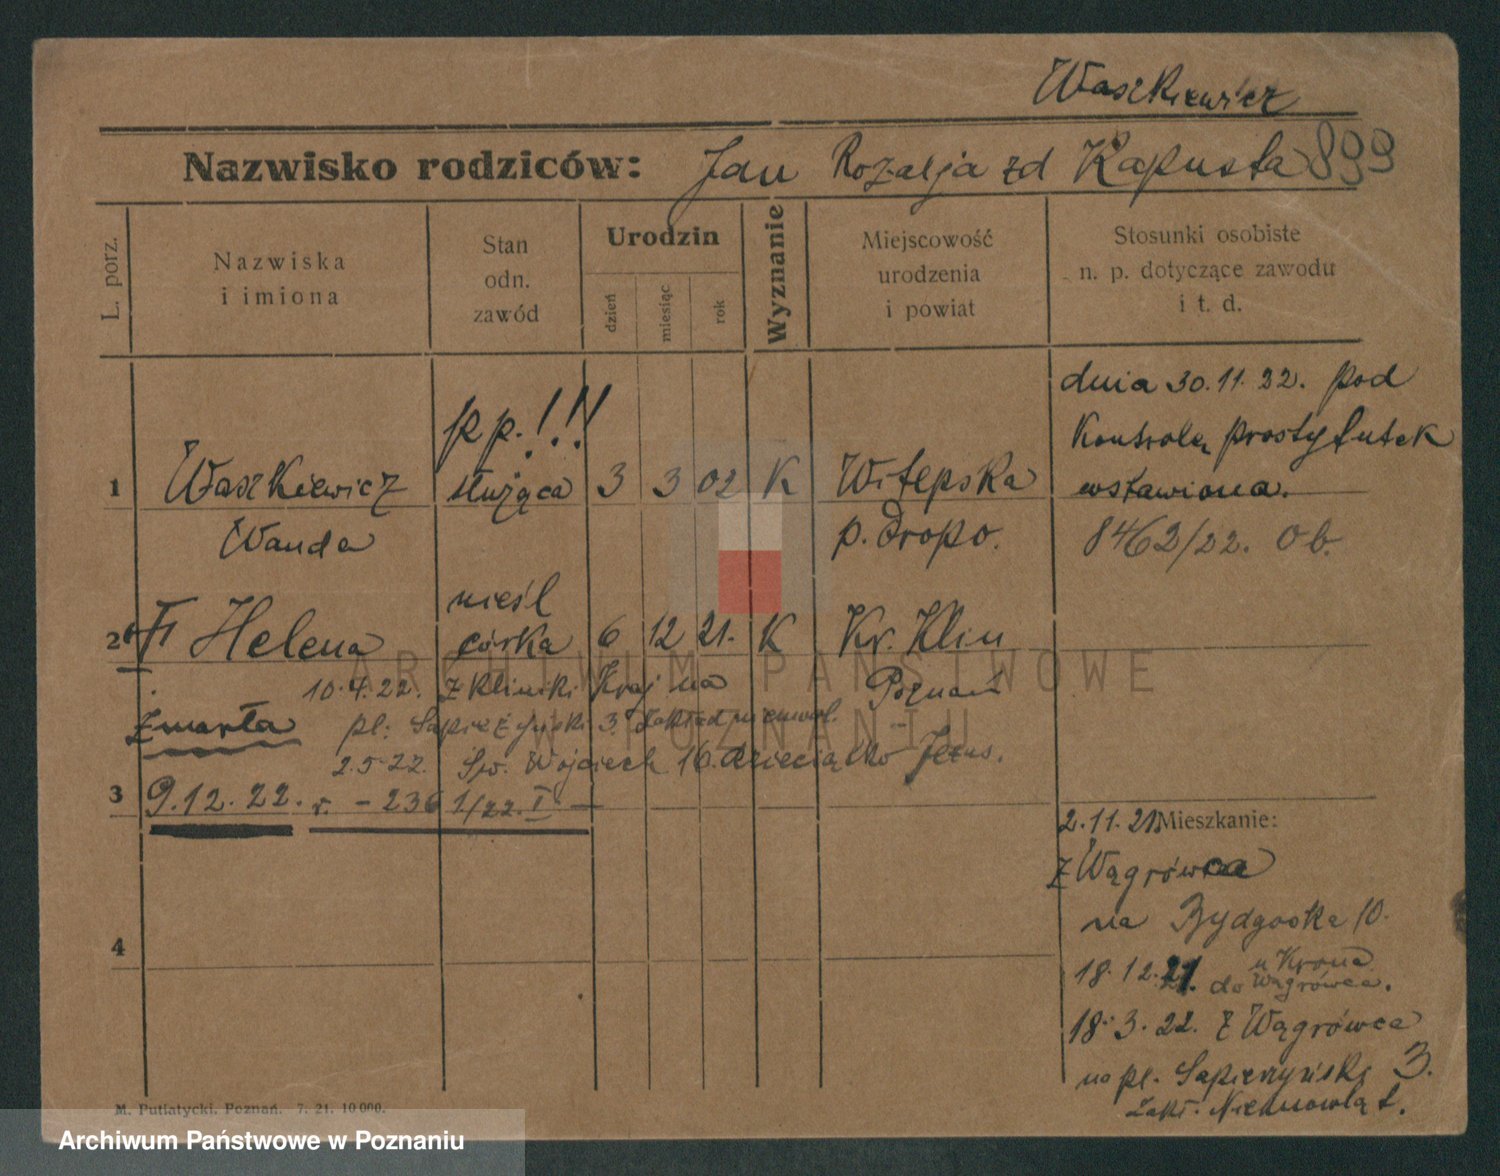 Waszkiewicz
Nazwisko rodziców: Jan Rozalja zd Kapusta 899
L. porz.
Nazwiska
i imiona
Stan
odn.
zawód
Urodzin
dzień
miesiąc
rok
Wyznanie
Miejscowość
urodzenia
i powiat
Stosunki osobiste
n. p. dotyczące zawodu
i t. d.
dnia 30.11.22. pod
kontrolą prostytutek
wstawiona.
8462/22. Ob.
pp.!!!
1 Waszkiewicz służąca 3 3 02 K Witepska
Wanda p. Dropo.
nieśl
2 Helena córka 6 12 21. K Kr. Klin
Poznań
10.4.22. z Kliniki Kraj na
zmarła pl. Sapieżyński 3. Zakład niemowl.
2.5.22. Św. Wojciech 16. dzieciątko Jezus.
3 9.12.22. r. - 2361/22. I -
4
2.11.21 Mieszkanie:
z Wągrówca
na Bydgoska 10.
u Krona
18.12.21. do Wągrówca.
18.3.22. z Wągrówca
na pl. Sapieżyński 3.
Zakł. Niemowląt.
M. Putiatycki, Poznań. 7. 21. 10 000.
ARCHIWUM PAŃSTWOWE
W POZNANIU
Archiwum Państwowe w Poznaniu